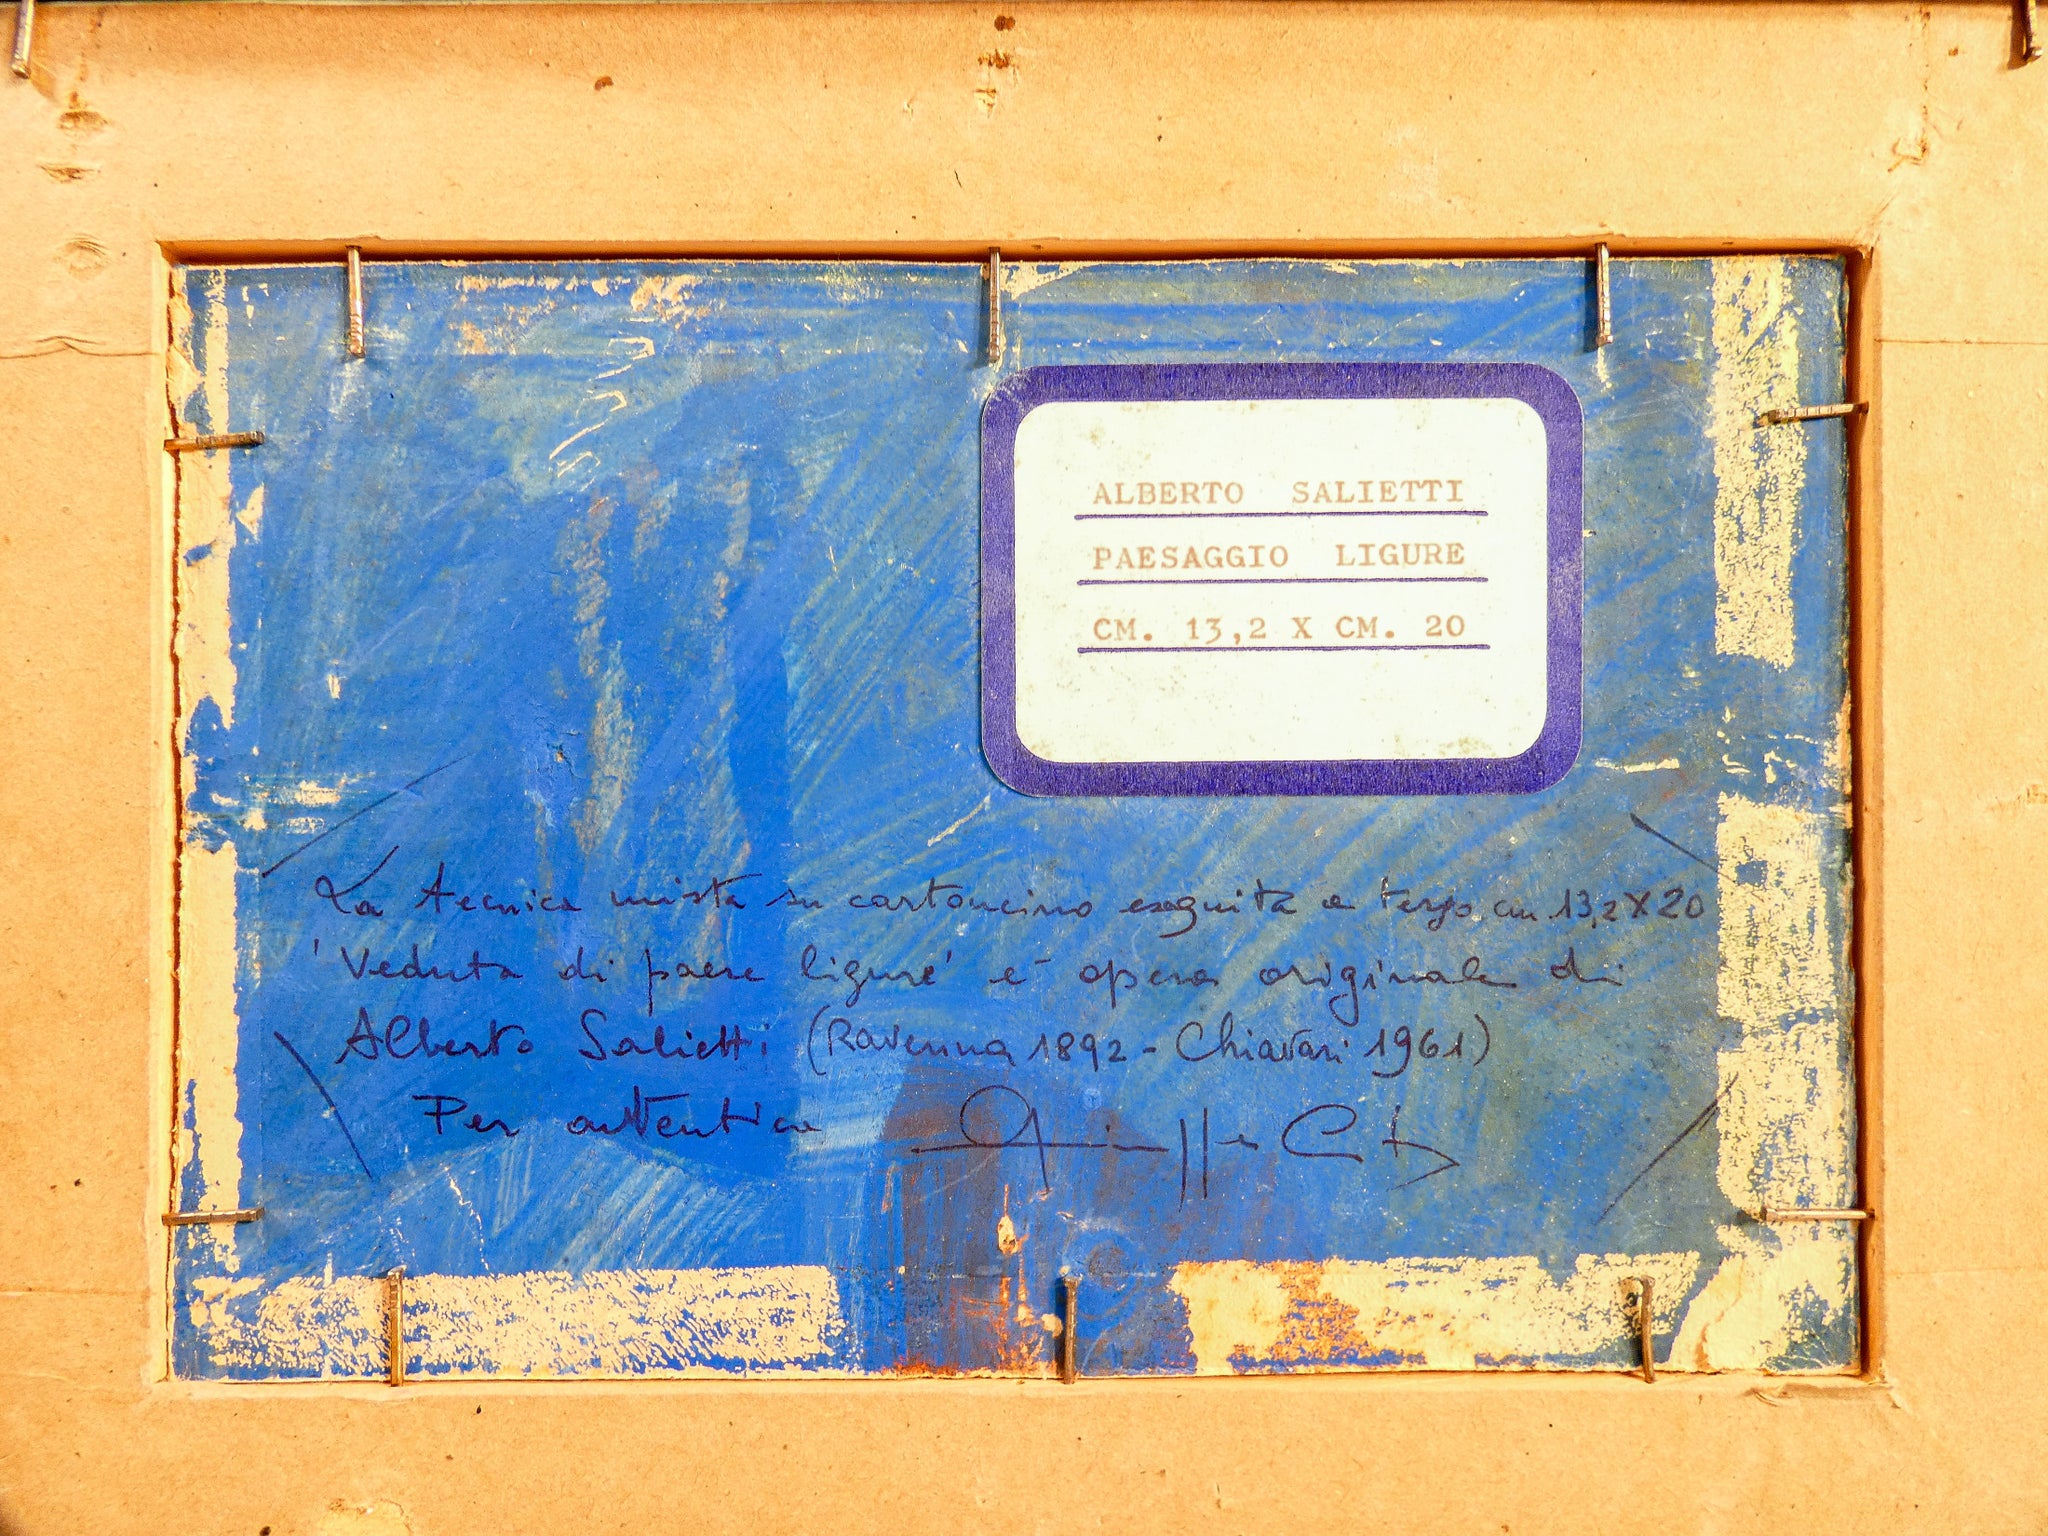 ALBERTO SALIETTI
PAESAGGIO LIGURE
CM. 13,2 X CM. 20
La tecnica mista su cartoncino eseguita a tergo cm 13,2 X 20
'Veduta di paese ligure' è opera originale di
Alberto Salietti (Ravenna 1892 - Chiavari 1961)
Per autentica